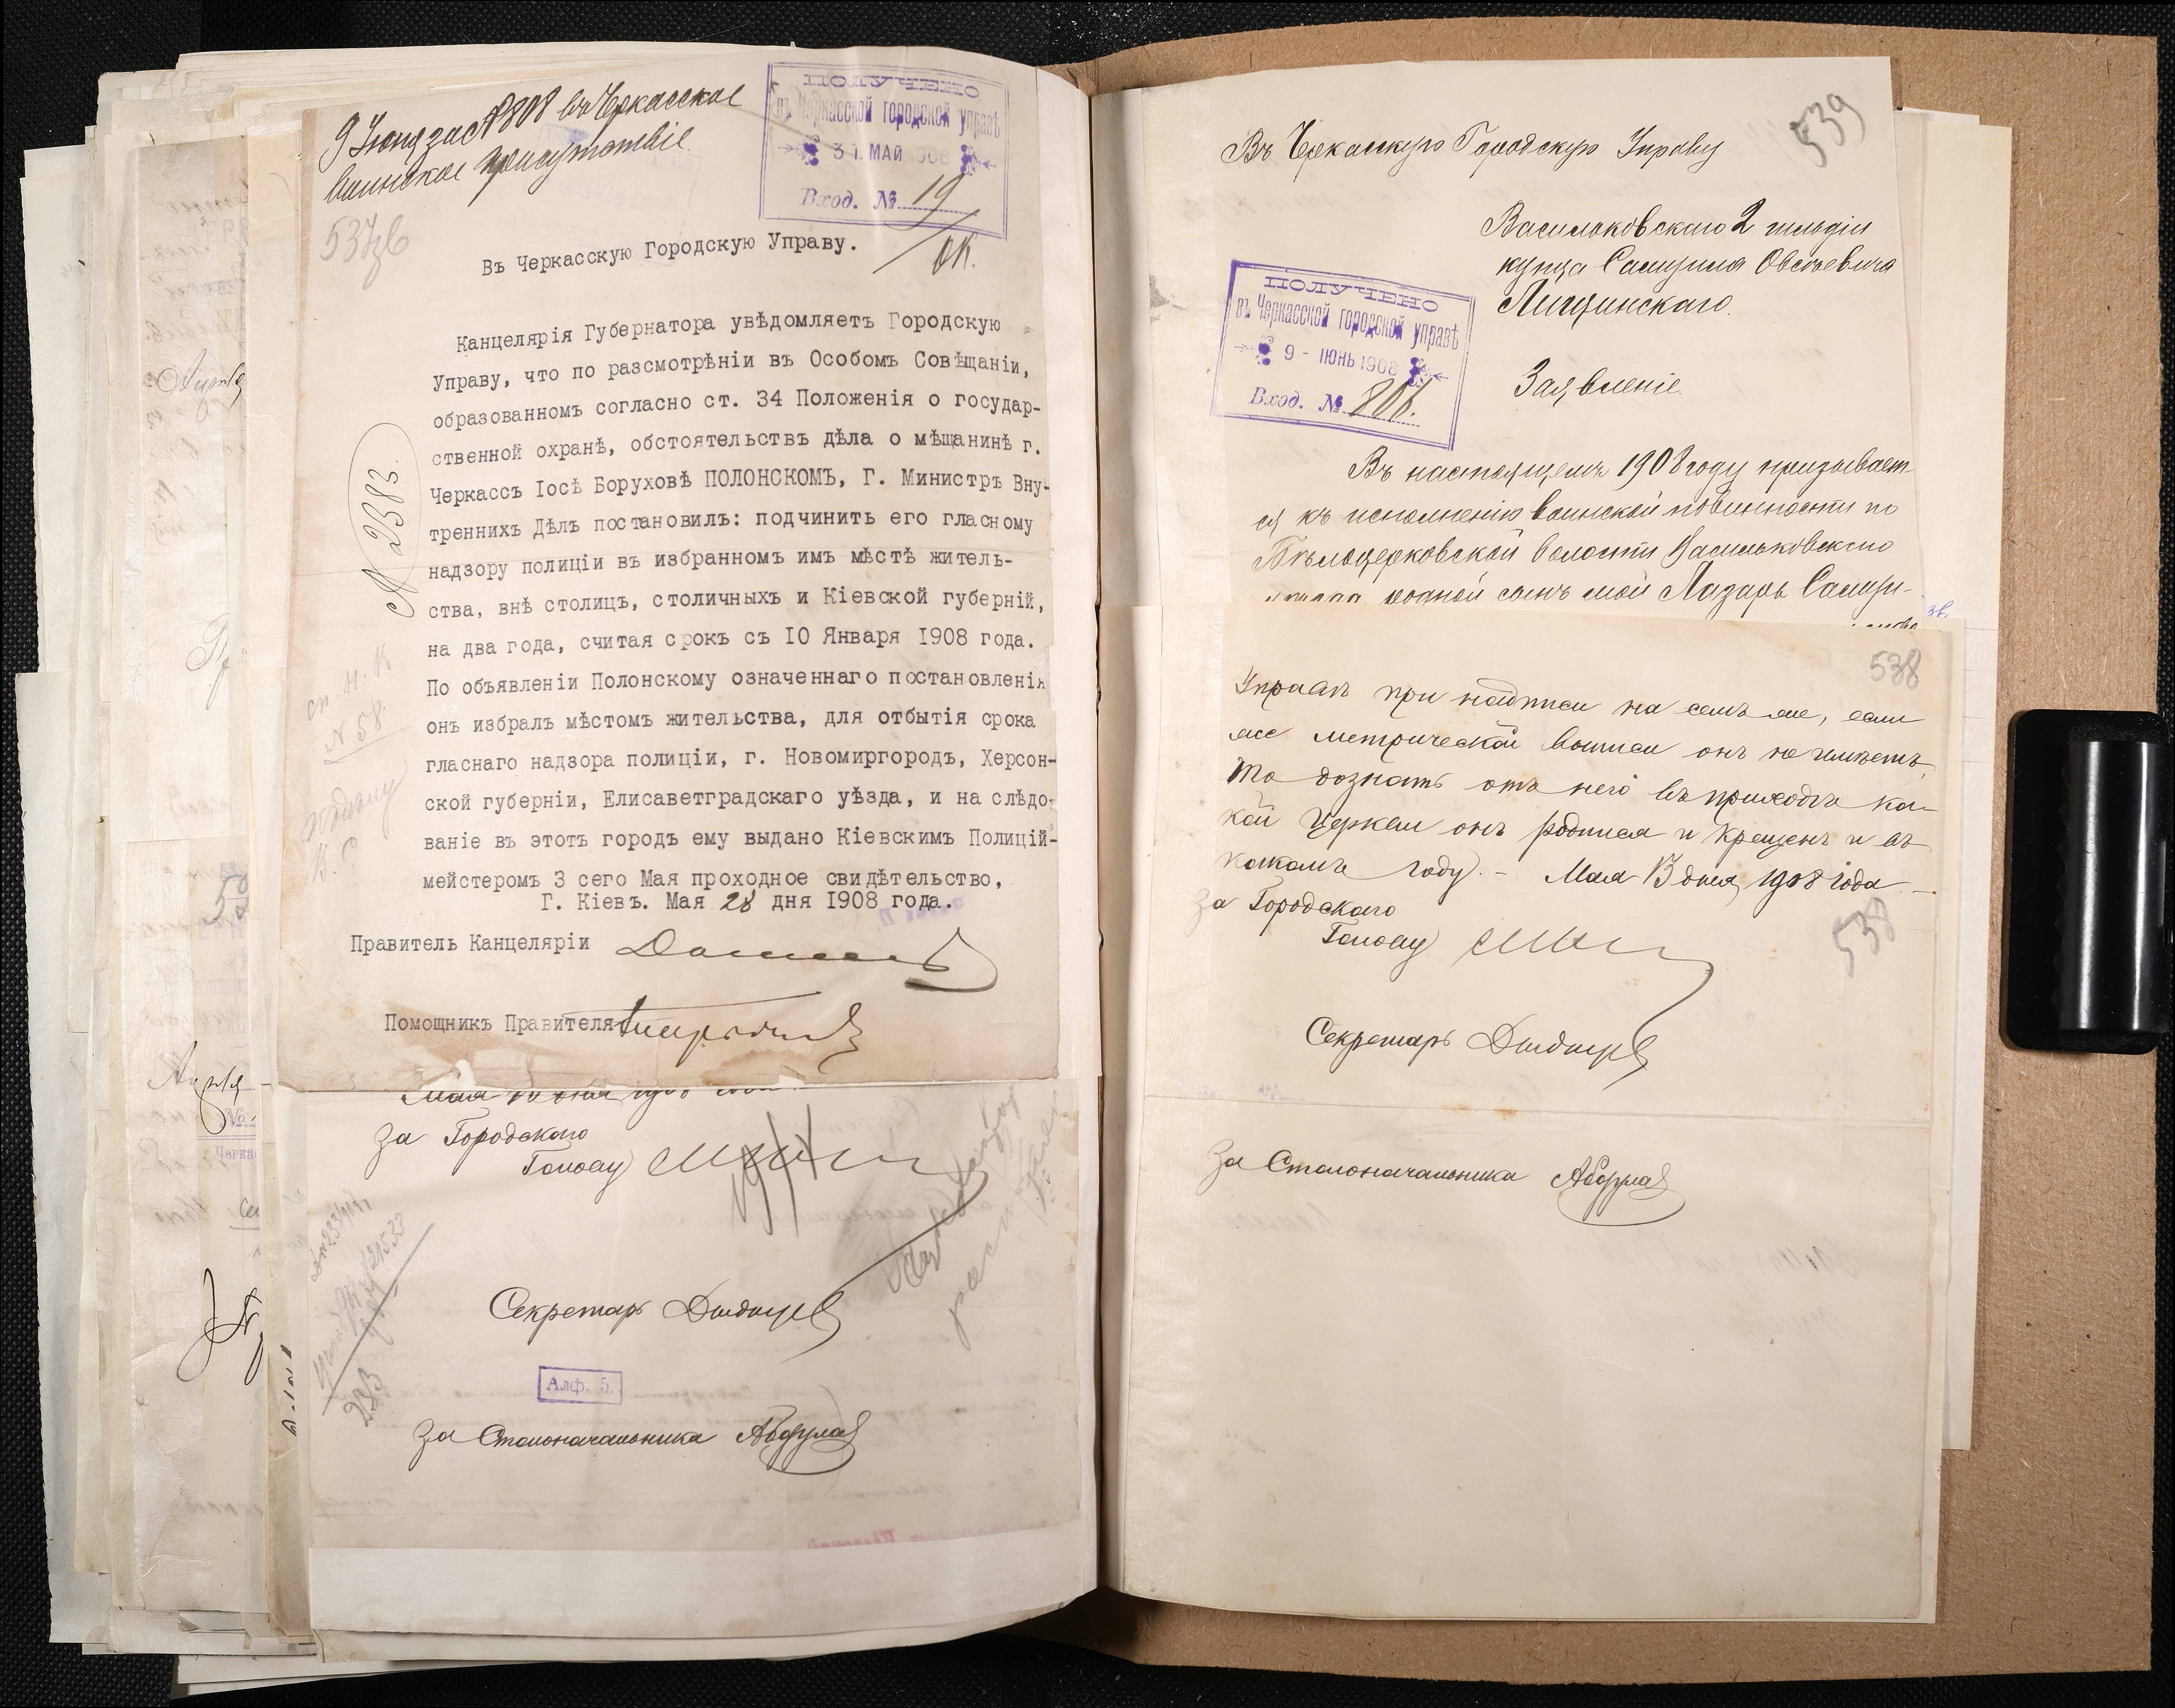 9 Июня за № 808 въ Черкасское
воинское присутствіе.
ПОЛУЧЕНО
въ Черкасской городской управѣ
31. МАЙ 1908
Вход. № 19
ОК.
537зв
Въ Черкасскую Городскую Управу.
Канцелярія Губернатора увѣдомляетъ Городскую
Управу, что по разсмотрѣніи въ Особомъ Совѣщаніи,
образованномъ согласно ст. 34 Положенія о государ-
ственной охранѣ, обстоятельствъ дѣла о мѣщанинѣ г.
Черкассъ Іосѣ Боруховѣ ПОЛОНСКОМЪ, Г. Министръ Вну-
треннихъ Дѣлъ постановилъ: подчинить его гласному
надзору полиціи въ избранномъ имъ мѣстѣ житель-
ства, внѣ столицъ, столичныхъ и Кіевской губерній,
на два года, считая срокъ съ 10 Января 1908 года.
По объявленіи Полонскому означеннаго постановленія
онъ избралъ мѣстомъ жительства, для отбытія срока
гласнаго надзора полиціи, г. Новомиргородъ, Херсон-
ской губерніи, Елисаветградскаго уѣзда, и на слѣдо-
ваніе въ этотъ городъ ему выдано Кіевскимъ Полицій-
мейстеромъ 3 сего Мая проходное свидѣтельство,
Г. Кіевъ. Мая 28 дня 1908 года.
№ 2383.
№ 58.
Правитель Канцеляріи
Помощникъ Правителя
За Городского
Голову
Секретарь
Алф. 5.
За Столоначальника
233
539
Въ Черкасскую Городскую Управу
Васильковскаго 2 гильдіи
купца Самуила Овсѣевича
Лищинскаго.
ПОЛУЧЕНО
въ Черкасской городской управѣ
9 - ІЮНЬ 1908
Вход. № 806.
Заявленіе.
Въ настоящемъ 1908 году призывает-
ся къ исполненію воинской повинности по
Бѣлоцерковской волости Васильковскаго
родной сынъ мой Лазарь Самуи-
зв.
538
Управѣ при надписи на семъ же, если
же метрической выписи онъ не имѣетъ,
то дознать отъ него въ приходѣ ка-
кой Церкви онъ родился и крещенъ и въ
какомъ году. - Мая 13 дня 1908 года. -
За Городского
Голову
538
Секретарь
За Столоначальника